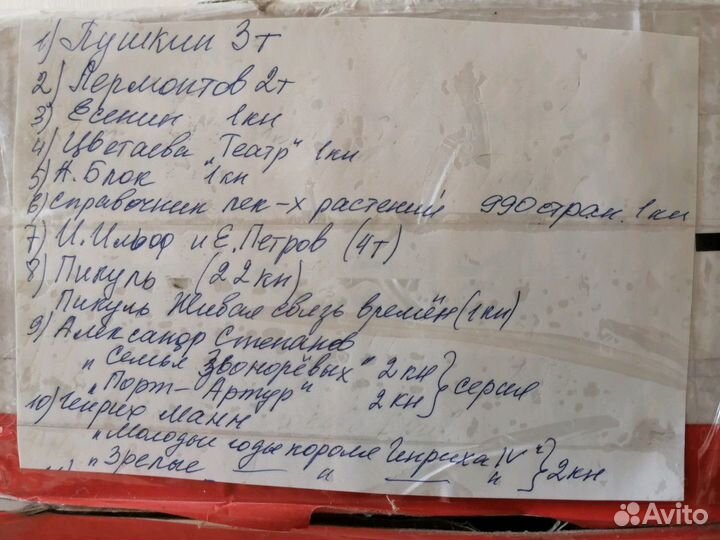 1) Пушкин 3т
2) Лермонтов 2т
3) Есенин 1кн
4) Цветаева "Театр" 1кн
5) А. Блок 1кн
6) Справочник лек-х растений 990 стран. 1кн
7) И. Ильф и Е. Петров (4т)
8) Пикуль (22кн)
Пикуль Живая связь времён (1кн)
9) Александр Степанов
"Семья Звонорёвых" 2кн
"Порт-Артур" 2кн } серия
10) Генрих Манн
"Молодые годы короля Генриха IV"
"Зрелые — " — " } 2кн
Avito